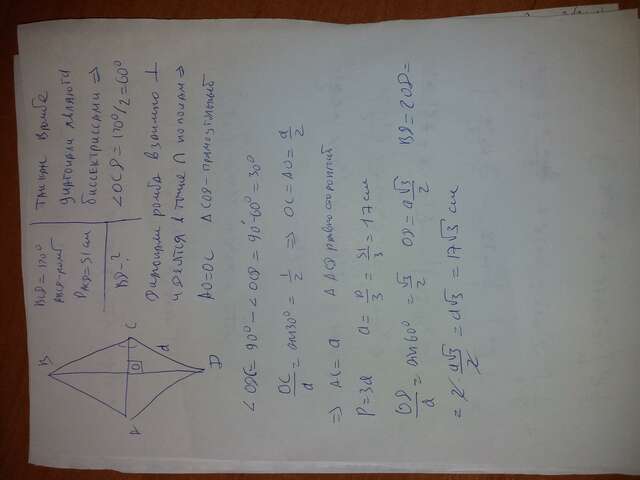 B
C
O
a
A
D
BCD = 120°
ABCD-ромб
P ACD = 51 см
BD-?
Так как в ромбе
диагонали являются
биссектриссами ⇒
∠OCD = 120°/2 = 60°
Диагонали ромба взаимно ⊥
и делятся в точке ∩ пополам ⇒
AO=OC △COD-прямоугольный
∠ODC = 90° - ∠OCD = 90°-60° = 30°
OC/a = sin30° = 1/2 ⇒ OC = AO = a/2
⇒ AC = a △ACD равносторонний
P=3a a = P/3 = 51/3 = 17см
OD/a = sin 60° = √3/2 OD = a√3/2 BD = 2OD =
= 2·a√3/2 = a√3 = 17√3 см